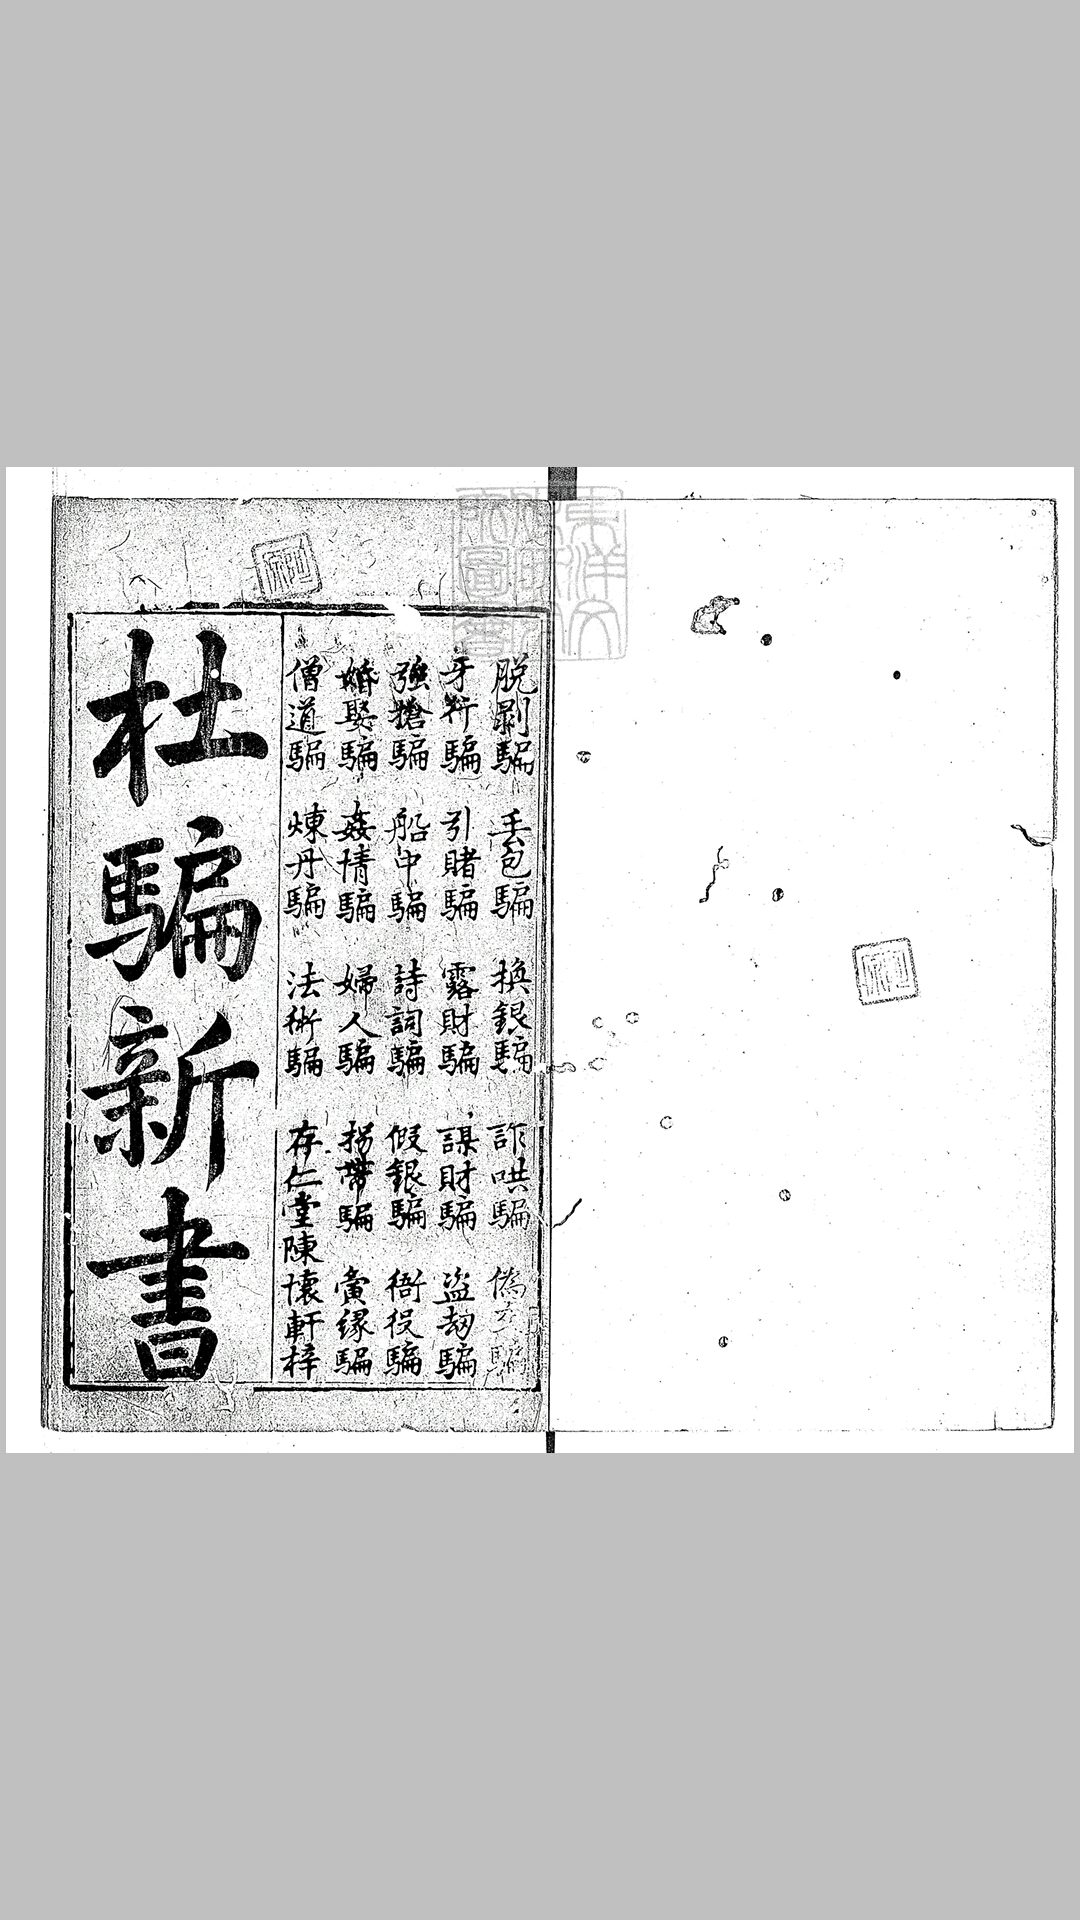 脫剥騙 丢包騙 換銀騙 詐哄騙 偽交騙
牙行騙 引賭騙 露財騙 謀財騙 盗劫騙
強搶騙 船中騙 詩詞騙 假銀騙 衙役騙
婚娶騙 姦情騙 婦人騙 拐帶騙 夤緣騙
僧道騙 煉丹騙 法術騙 存仁堂陳懷軒梓
杜騙新書